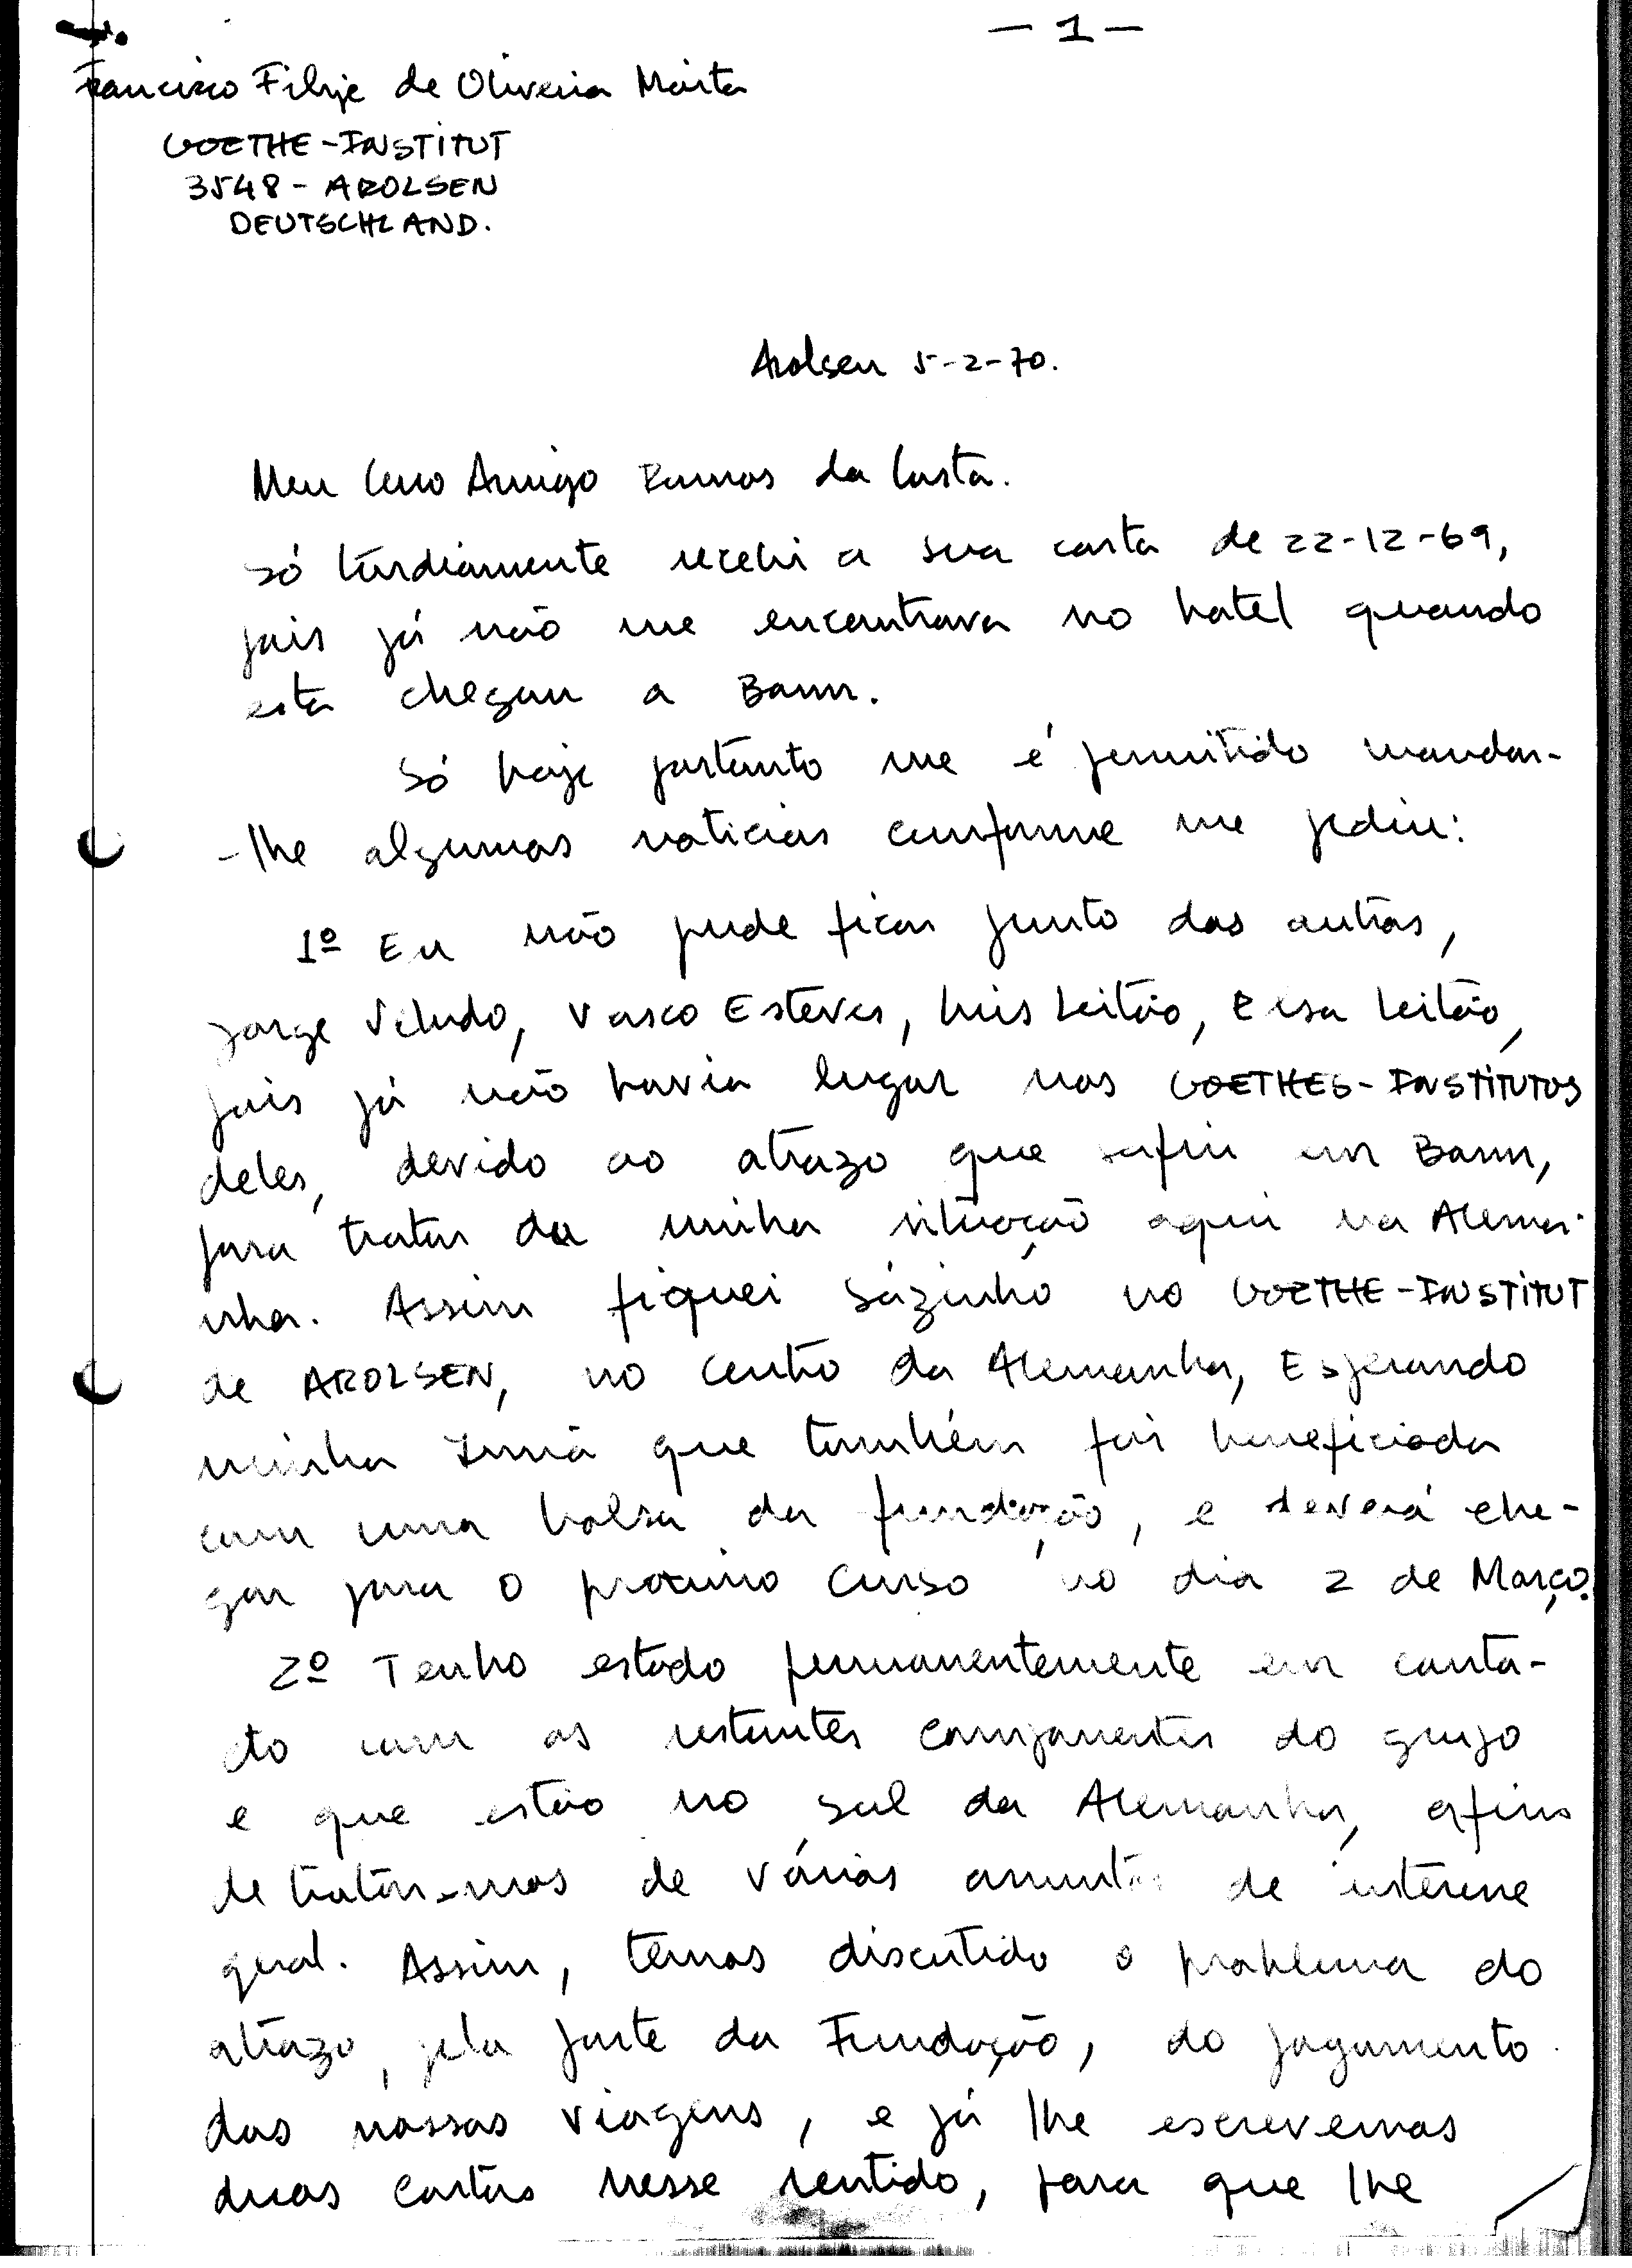 - 1 -
Francisco Filipe de Oliveira Marta
GOETHE-INSTITUT
3548 - AROLSEN
DEUTSCHLAND.
Arolsen 5-2-70.
Meu Caro Amigo Ramos da Costa.
Só tardiamente recebi a sua carta de 22-12-69,
pois já não me encontrava no hotel quando
esta chegou a Bonn.
Só hoje portanto me é permitido mandar-
-lhe algumas noticias conforme me pediu:
1º Eu não pude ficar junto dos outros,
Jorge Veludo, Vasco Esteves, Luis Leitão, Elsa Leitão,
pois já não havia lugar nos GOETHES-INSTITUTOS
deles, devido ao atrazo que sofri em Bonn,
para tratar da minha situação aqui na Alema-
nha. Assim fiquei sózinho no GOETHE-INSTITUT
de AROLSEN, no centro da Alemanha, Esperando
minha Irmã que também foi beneficiada
com uma bolsa da fundação, e deverá che-
gar para o proximo curso no dia 2 de Março.
2º Tenho estado permanentemente em conta-
cto com os restantes componentes do grupo
e que estão no sul da Alemanha, afim
de tratar-mos de vários assuntos de interesse
geral. Assim, temos discutido o problema do
atrazo, pela parte da Fundação, do pagamento
das nossas viagens, e já lhe escrevemos
duas cartas nesse sentido, para que lhe